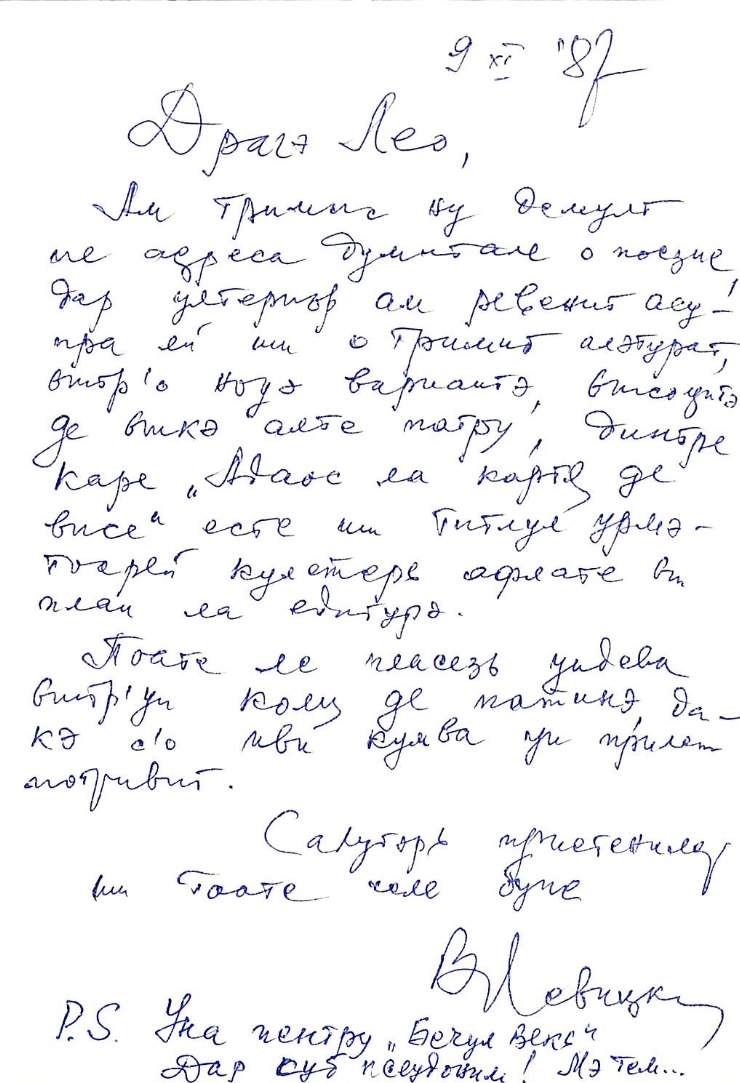 9 XI '87
Драгэ Лео,
Ам тримис ну демулт
пе адреса думитале о поезие,
дар ултериор ам ревенит асу-
пра ей ши о тримит алэтурат,
ынтр'о ноуэ вариантэ, ынсоцитэ
де ынкэ алте патру, динтре
каре „Адаос ла картя де
висе" есте ши титлул урмэ-
тоарей кулежерь афлате ын
план ла едитурэ.
Поате ле пласезь ундева
ынтр'ун колц де пажинэ, да-
кэ с'о иви кумва ун прилеж
потривит.
Салуторь приетенилор
ши тоате челе буне
В Левицки
P.S. Уна пентру „Бечул векь"
Дар суб псеудоним! Мэ тем...